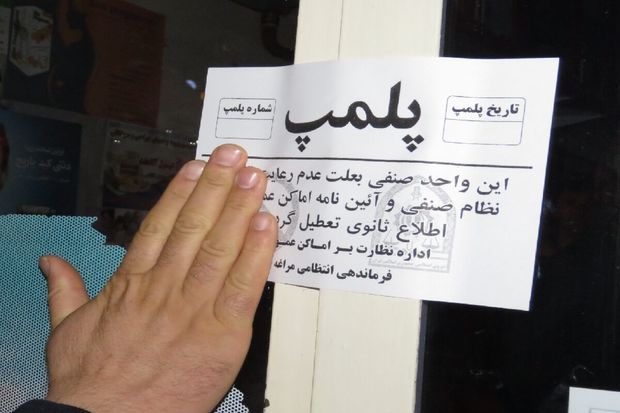 تاریخ پلمپ
پلمپ
شماره پلمپ
این واحد صنفی بعلت عدم رعایت
نظام صنفی و آئین نامه اماکن
اطلاع ثانوی تعطیل
اداره نظارت بر اماکن
فرماندهی انتظامی مراغه